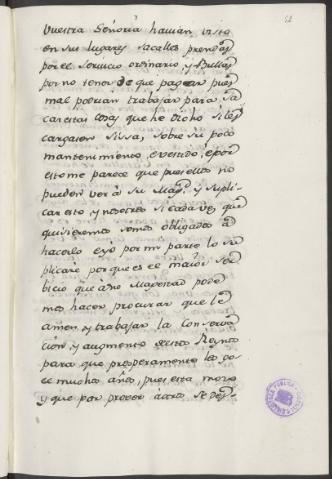 52
Vuestra Señoria havian visto
en sus lugares sacalles prendas
por el servicio ordinario, y Bullas
por no tener de que pagar pues
mal podrian trabajar para sa
car estas cosas que he dicho si les
cargasen sisa, sobre su poco
mantenimiento, e vestido, e por
esto me parece que pues ellos no
pueden ver à Su Magd. y supli-
car esto, y nosotros si cada vez que
quisieremos somos obligados à
hacello e yo por mi parte lo su
plicare por que es el maior ser
bicio que à Su Magestad pode
mos hacer procurar que le
amen, y trabajar la conserva
cion, y augmento destos Reynos
para que prosperamente los go-
ce muchos años, pues esta mozo
y que por proveer a otros se dej-